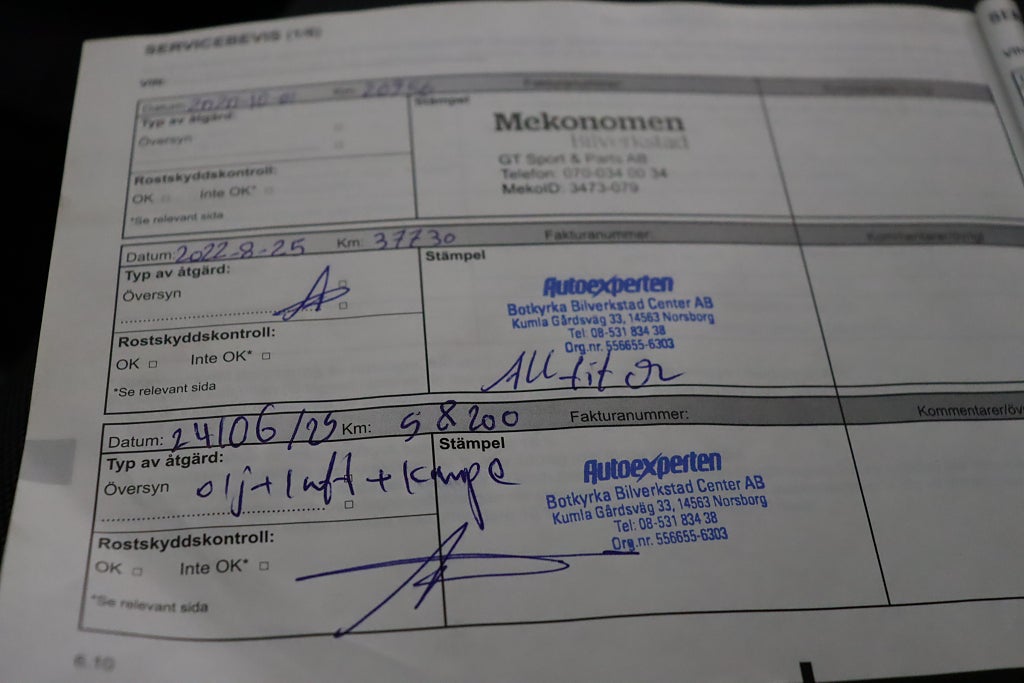 SERVICEBEVIS (1/6)
VIN:
Datum: 2020-10-01 Km: Fakturanummer:
Typ av åtgärd: Stämpel
Översyn
Mekonomen
Bilverkstad
GT Sport & Parts AB
Telefon: 070-034 00 34
MekoID: 3473-079
Rostskyddskontroll:
OK □ Inte OK* □
*Se relevant sida
Datum: 2022-8-25 Km: 37730 Fakturanummer: Kommentarer/övrigt
Typ av åtgärd: Stämpel
Översyn
Autoexperten
Botkyrka Bilverkstad Center AB
Kumla Gårdsväg 33, 14563 Norsborg
Tel: 08-531 834 38
Org.nr. 556655-6303
Rostskyddskontroll:
OK □ Inte OK* □
*Se relevant sida
All filter
Datum: 24/06/25 Km: 58200 Fakturanummer: Kommentarer/öv
Typ av åtgärd: Stämpel
Översyn olj+luft+kupe
Autoexperten
Botkyrka Bilverkstad Center AB
Kumla Gårdsväg 33, 14563 Norsborg
Tel: 08-531 834 38
Org.nr. 556655-6303
Rostskyddskontroll:
OK □ Inte OK* □
*Se relevant sida
6.10